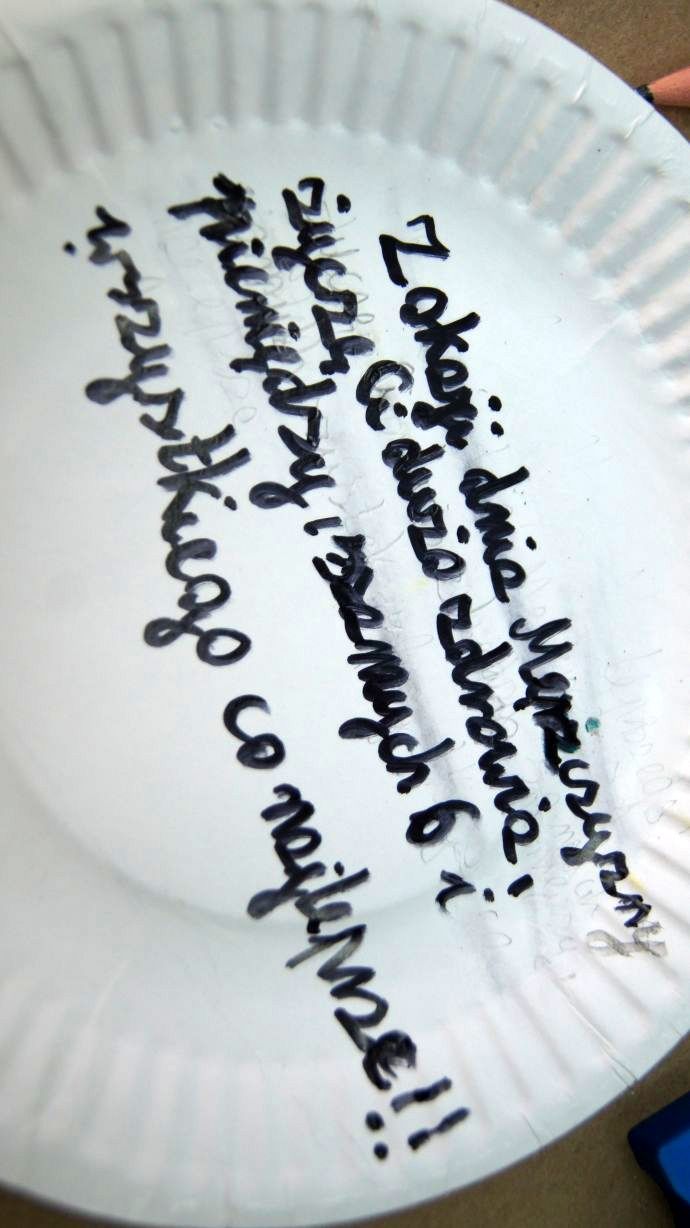 Z okazji dnia Mężczyzny
życzę Ci dużo zdrowia,
pieniędzy, samych 6 i
wszystkiego co najlepsze!!